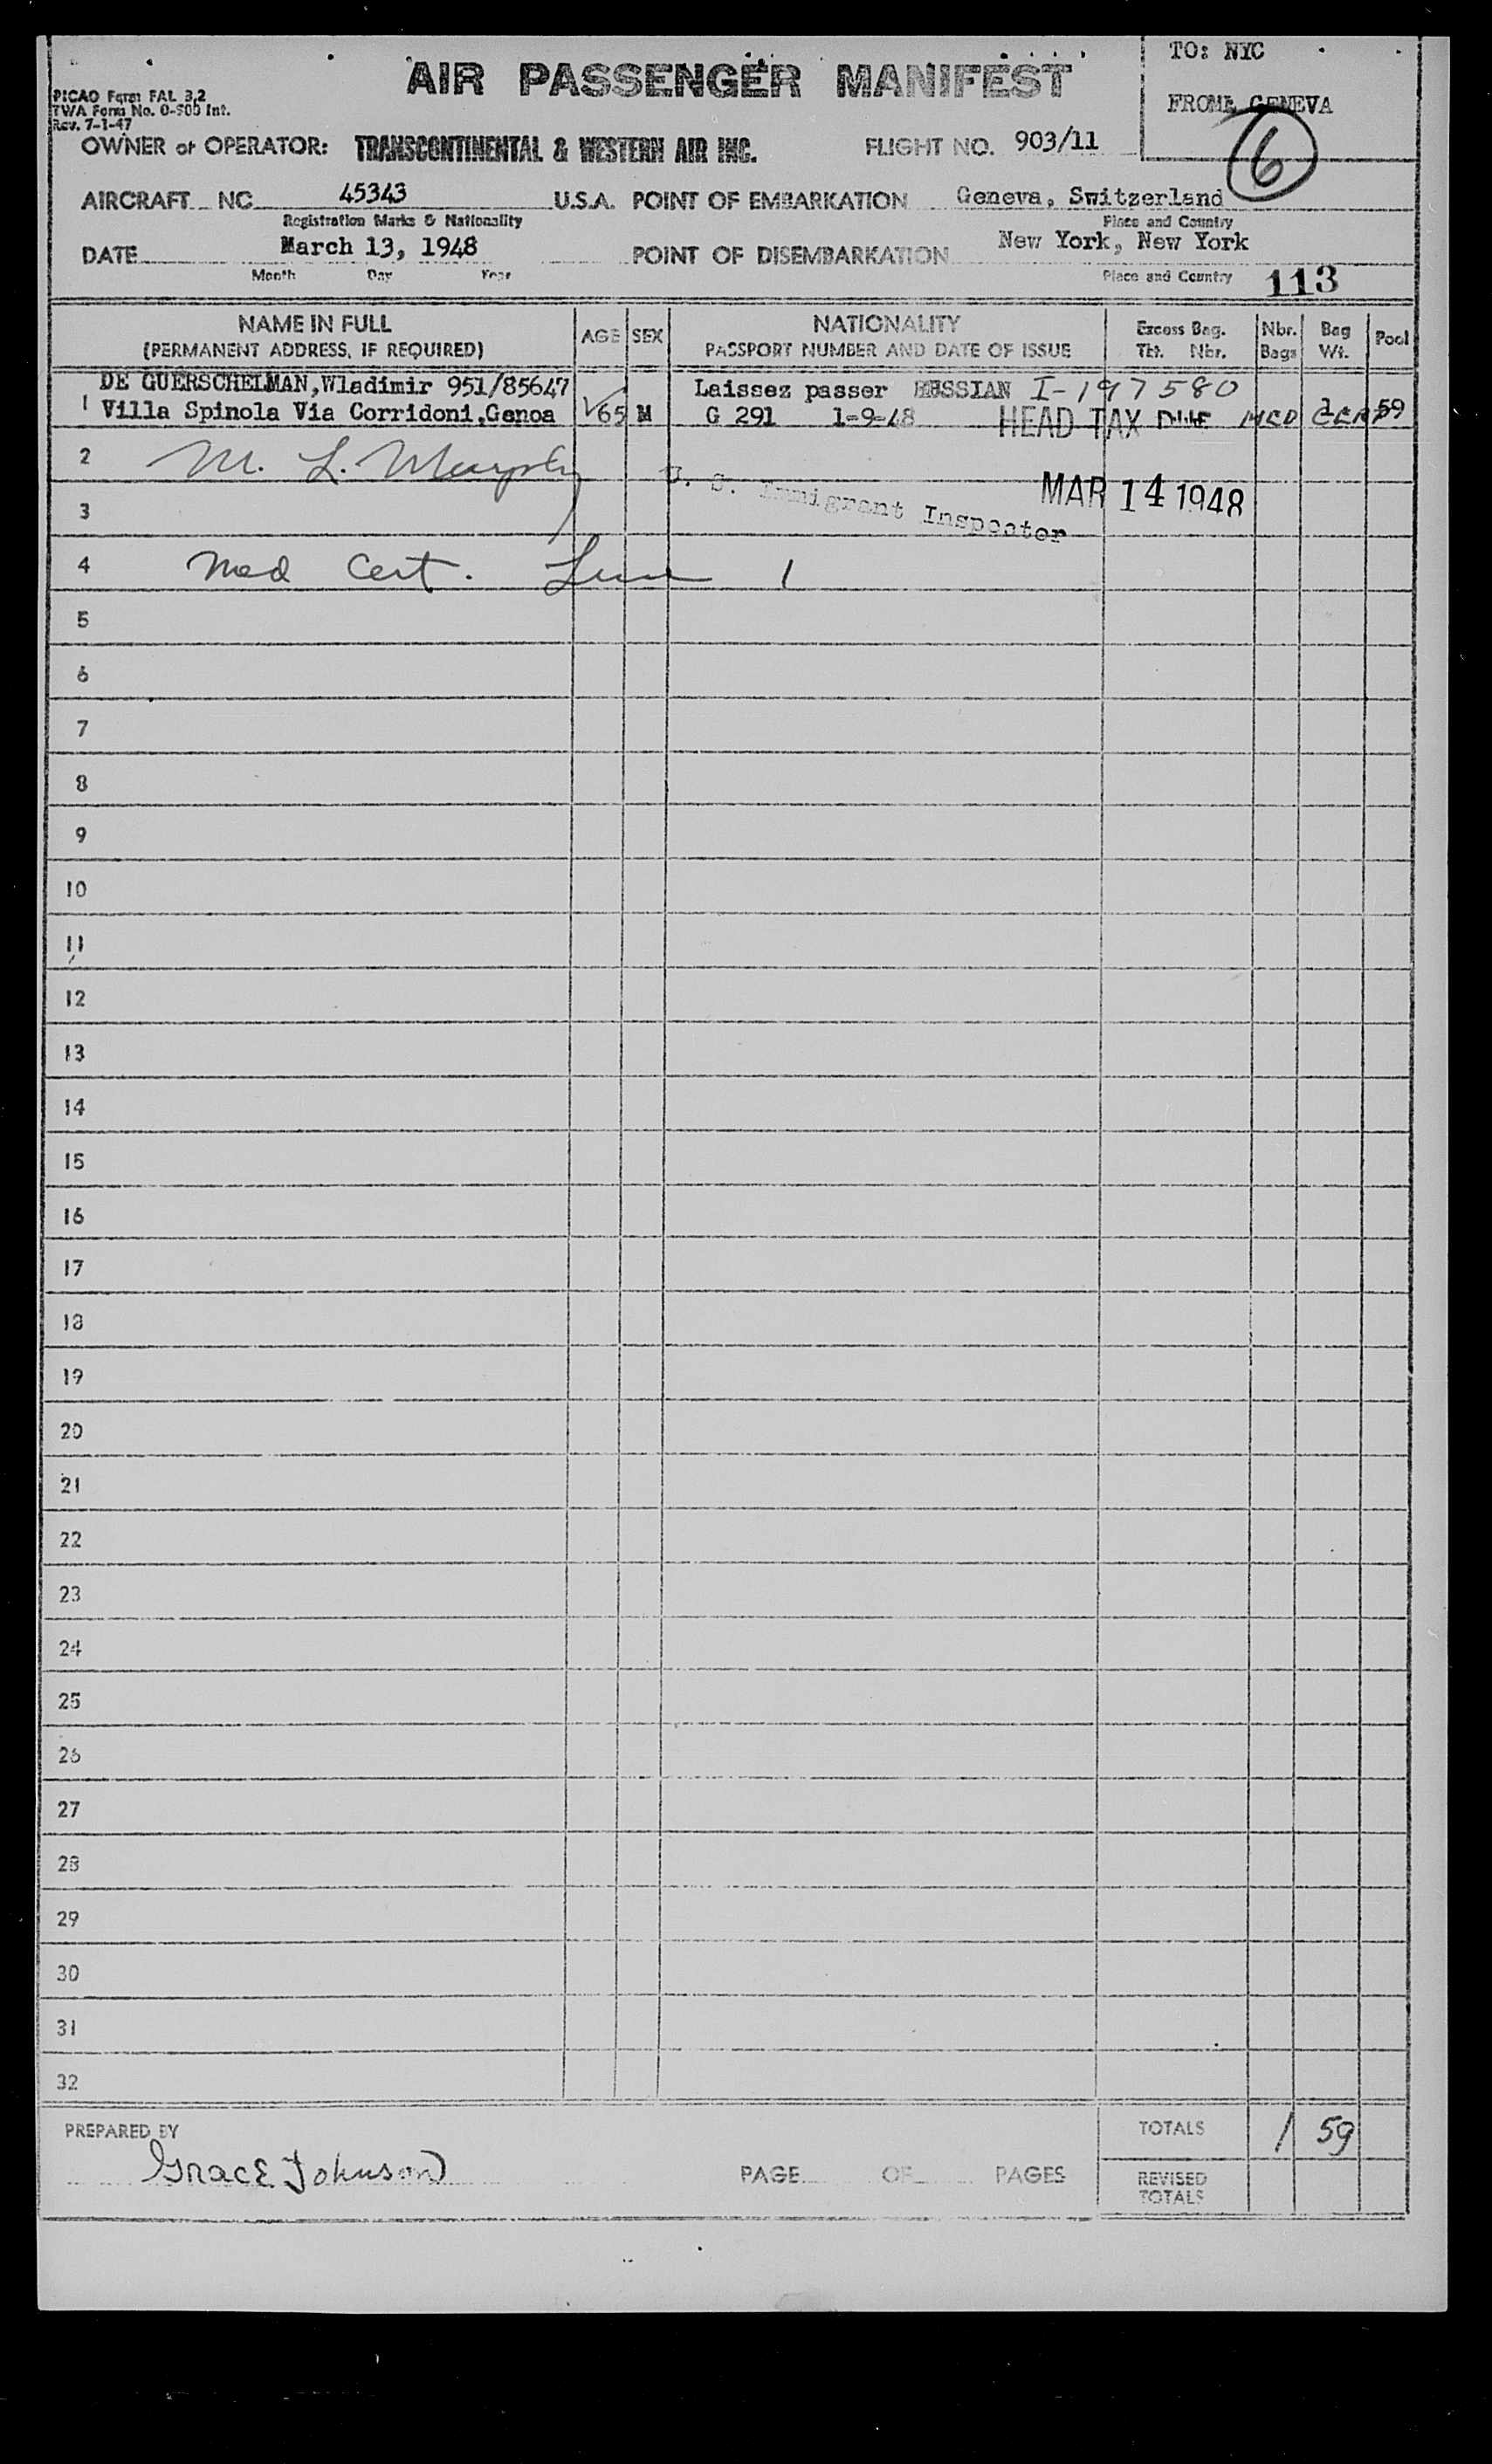 AIR PASSENGER MANIFEST
TO: NYC
FROM: GENEVA
6
PICAO Form FAL 3.2
TWA Form No. O-900 Int.
Rev. 7-1-47
OWNER or OPERATOR: TRANSCONTINENTAL & WESTERN AIR INC. FLIGHT NO. 903/11
AIRCRAFT NC 45343 U.S.A. POINT OF EMBARKATION Geneva, Switzerland
Registration Marks & Nationality Place and Country
DATE March 13, 1948 POINT OF DISEMBARKATION New York, New York
Month Day Year Place and Country 113
NAME IN FULL AGE SEX NATIONALITY Excess Bag. Nbr. Bag Pool
(PERMANENT ADDRESS, IF REQUIRED) PASSPORT NUMBER AND DATE OF ISSUE Tkt. Nbr. Bags Wt.
DE GUERSCHELMAN,Wladimir 951/85647 Laissez passer RUSSIAN I-197580
1 Villa Spinola Via Corridoni,Genoa 65 M G 291 1-9-48 HEAD TAX DUE MED CERT 1 59
2 M. L. Murphy U. S. Immigrant Inspector MAR 14 1948
3
4 Med Cert. Line 1
5
6
7
8
9
10
11
12
13
14
15
16
17
18
19
20
21
22
23
24
25
26
27
28
29
30
31
32
PREPARED BY TOTALS 1 59
Grace Johnson PAGE OF PAGES REVISED
TOTALS